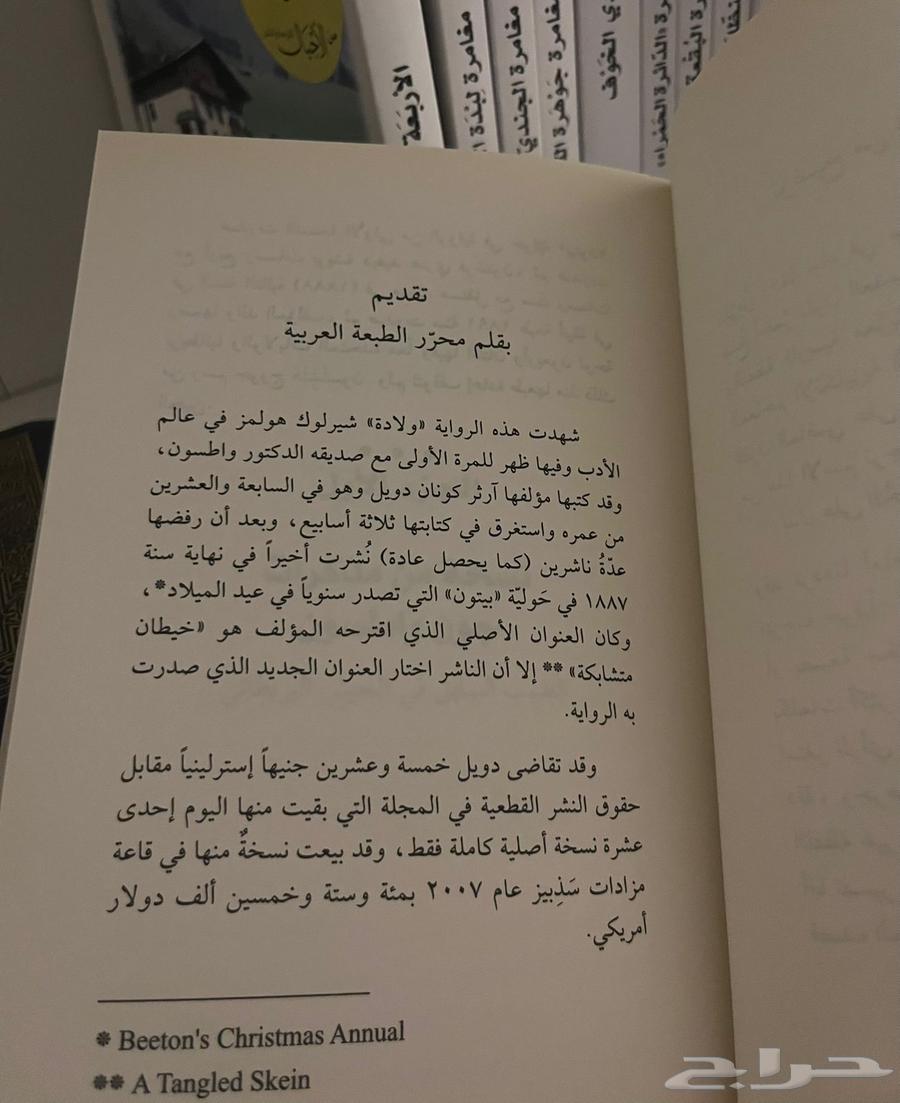 أجيال
الأربعة
مغامرة لبدة
مغامرة الجندي
مغامرة جوهرة
الخوف
الدائرة الحمراء
البقعة
تقديم
بقلم محرّر الطبعة العربية
شهدت هذه الرواية «ولادة» شيرلوك هولمز في عالم
الأدب وفيها ظهر للمرة الأولى مع صديقه الدكتور واطسون،
وقد كتبها مؤلفها آرثر كونان دويل وهو في السابعة والعشرين
من عمره واستغرق في كتابتها ثلاثة أسابيع، وبعد أن رفضها
عدّةُ ناشرين (كما يحصل عادة) نُشرت أخيراً في نهاية سنة
١٨٨٧ في حَوليّة «بيتون» التي تصدر سنوياً في عيد الميلاد*،
وكان العنوان الأصلي الذي اقترحه المؤلف هو «خيطان
متشابكة»** إلا أن الناشر اختار العنوان الجديد الذي صدرت
به الرواية.
وقد تقاضى دويل خمسة وعشرين جنيهاً إسترلينياً مقابل
حقوق النشر القطعية في المجلة التي بقيت منها اليوم إحدى
عشرة نسخة أصلية كاملة فقط، وقد بيعت نسخةٌ منها في قاعة
مزادات سَذِبيز عام ٢٠٠٧ بمئة وستة وخمسين ألف دولار
أمريكي.
* Beeton's Christmas Annual
** A Tangled Skein
حراج